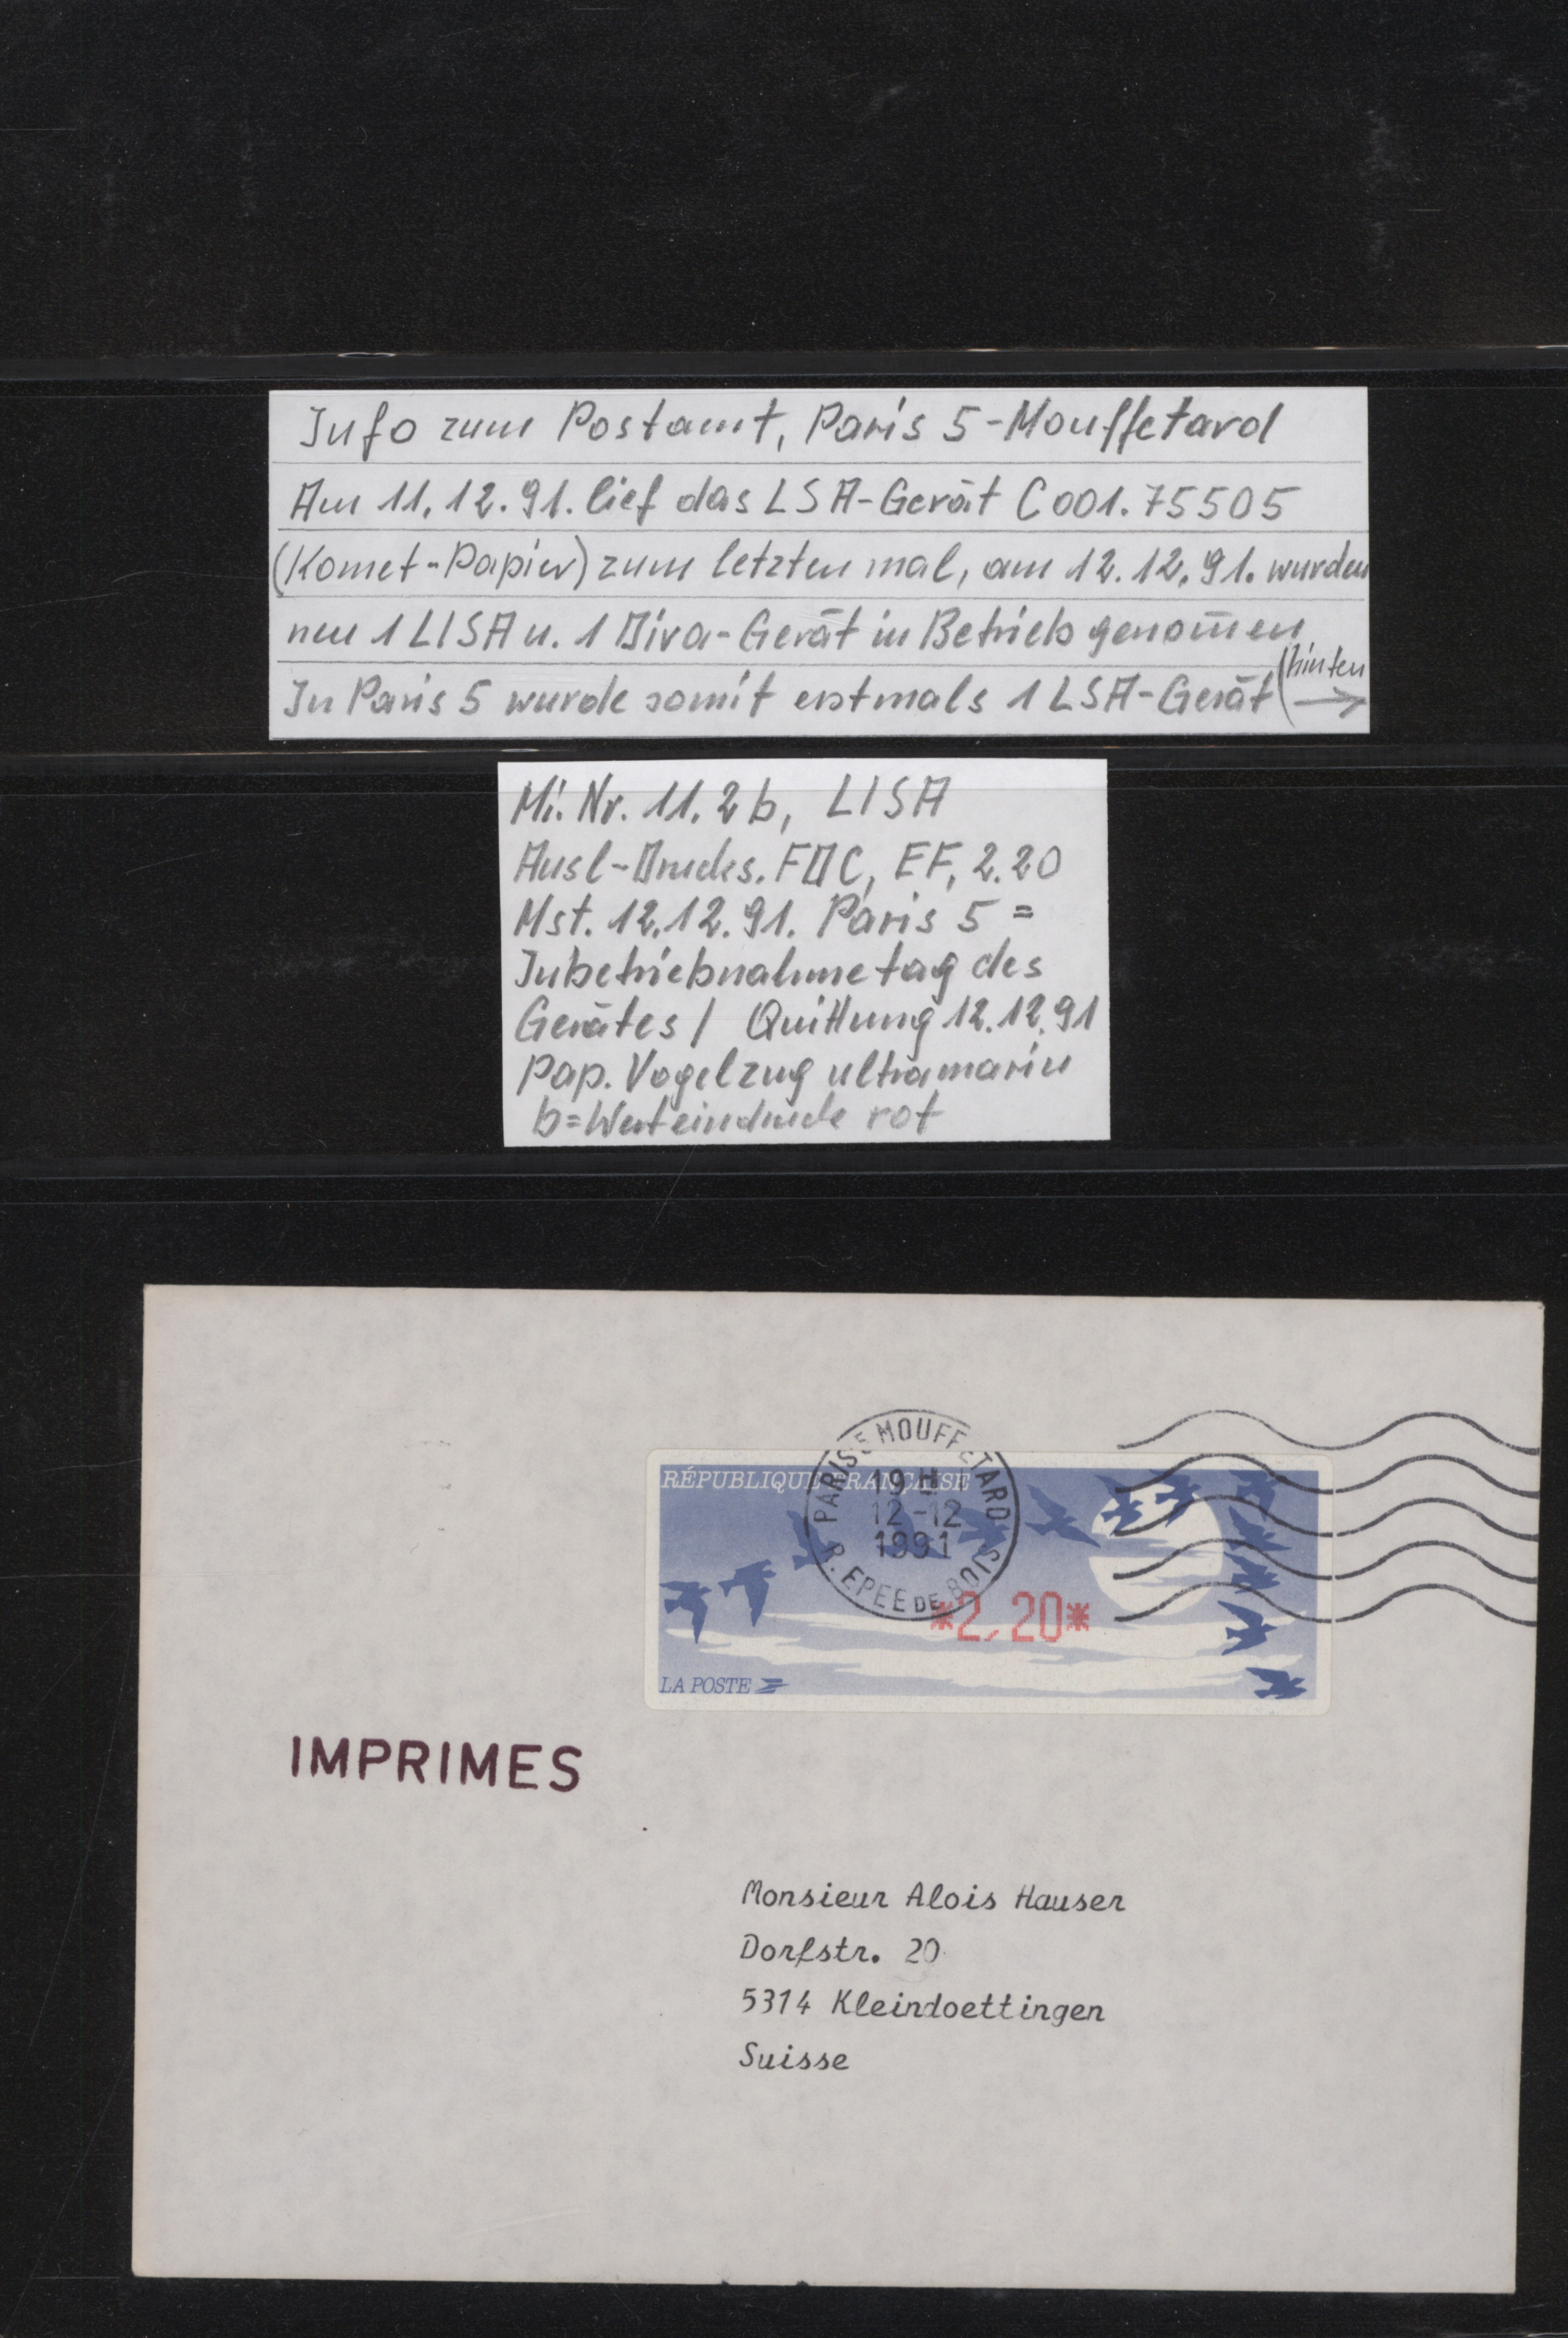 Info zum Postamt, Paris 5-Mouffetard
Am 11.12.91. lief das LSA-Gerät C001.75505
(Komet-Papier) zum letzten mal, am 12.12.91. wurden
neu 1 LISA u. 1 Diva-Gerät in Betrieb genom̄en
In Paris 5 wurde somit erstmals 1 LSA-Gerät (hinten →
Mi. Nr. 11.2b, LISA
Ausl-Drucks. FDC, EF, 2.20
Mst. 12.12.91. Paris 5 =
Inbetriebnahmetag des
Gerätes / Quittung 12.12.91
Pap. Vogelzug ultramarin
b=Werteindruck rot
PARIS 5 MOUFFETARD
RÉPUBLIQUE FRANÇAISE
19 H
12-12
1991
R. EPEE DE BOIS
*2,20*
LA POSTE
IMPRIMES
Monsieur Alois Hauser
Dorfstr. 20
5314 Kleindoettingen
Suisse